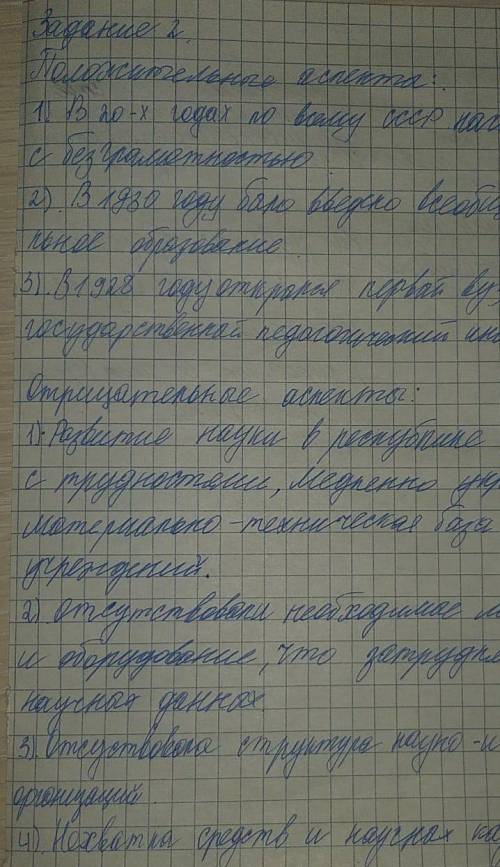 Задание 2.
Положительные аспекты:
1). В 20-х годах по всему СССР нач
с безграмотностью.
2). В 1930 году было введно всеобщ
льное образование
3). В 1928 году открылся первый ву
государственный педагогический инс
Отрицательные аспекты:
1). Развитие науки в республике
с трудностями, медленно укр
материально-техническая база
учреждений.
2) Отсутствовали необходимые
и оборудование, что затрудня
научных данных
3). Отсуствовала структура научно-и
организаций.
4). Нехватка средств и научных ка